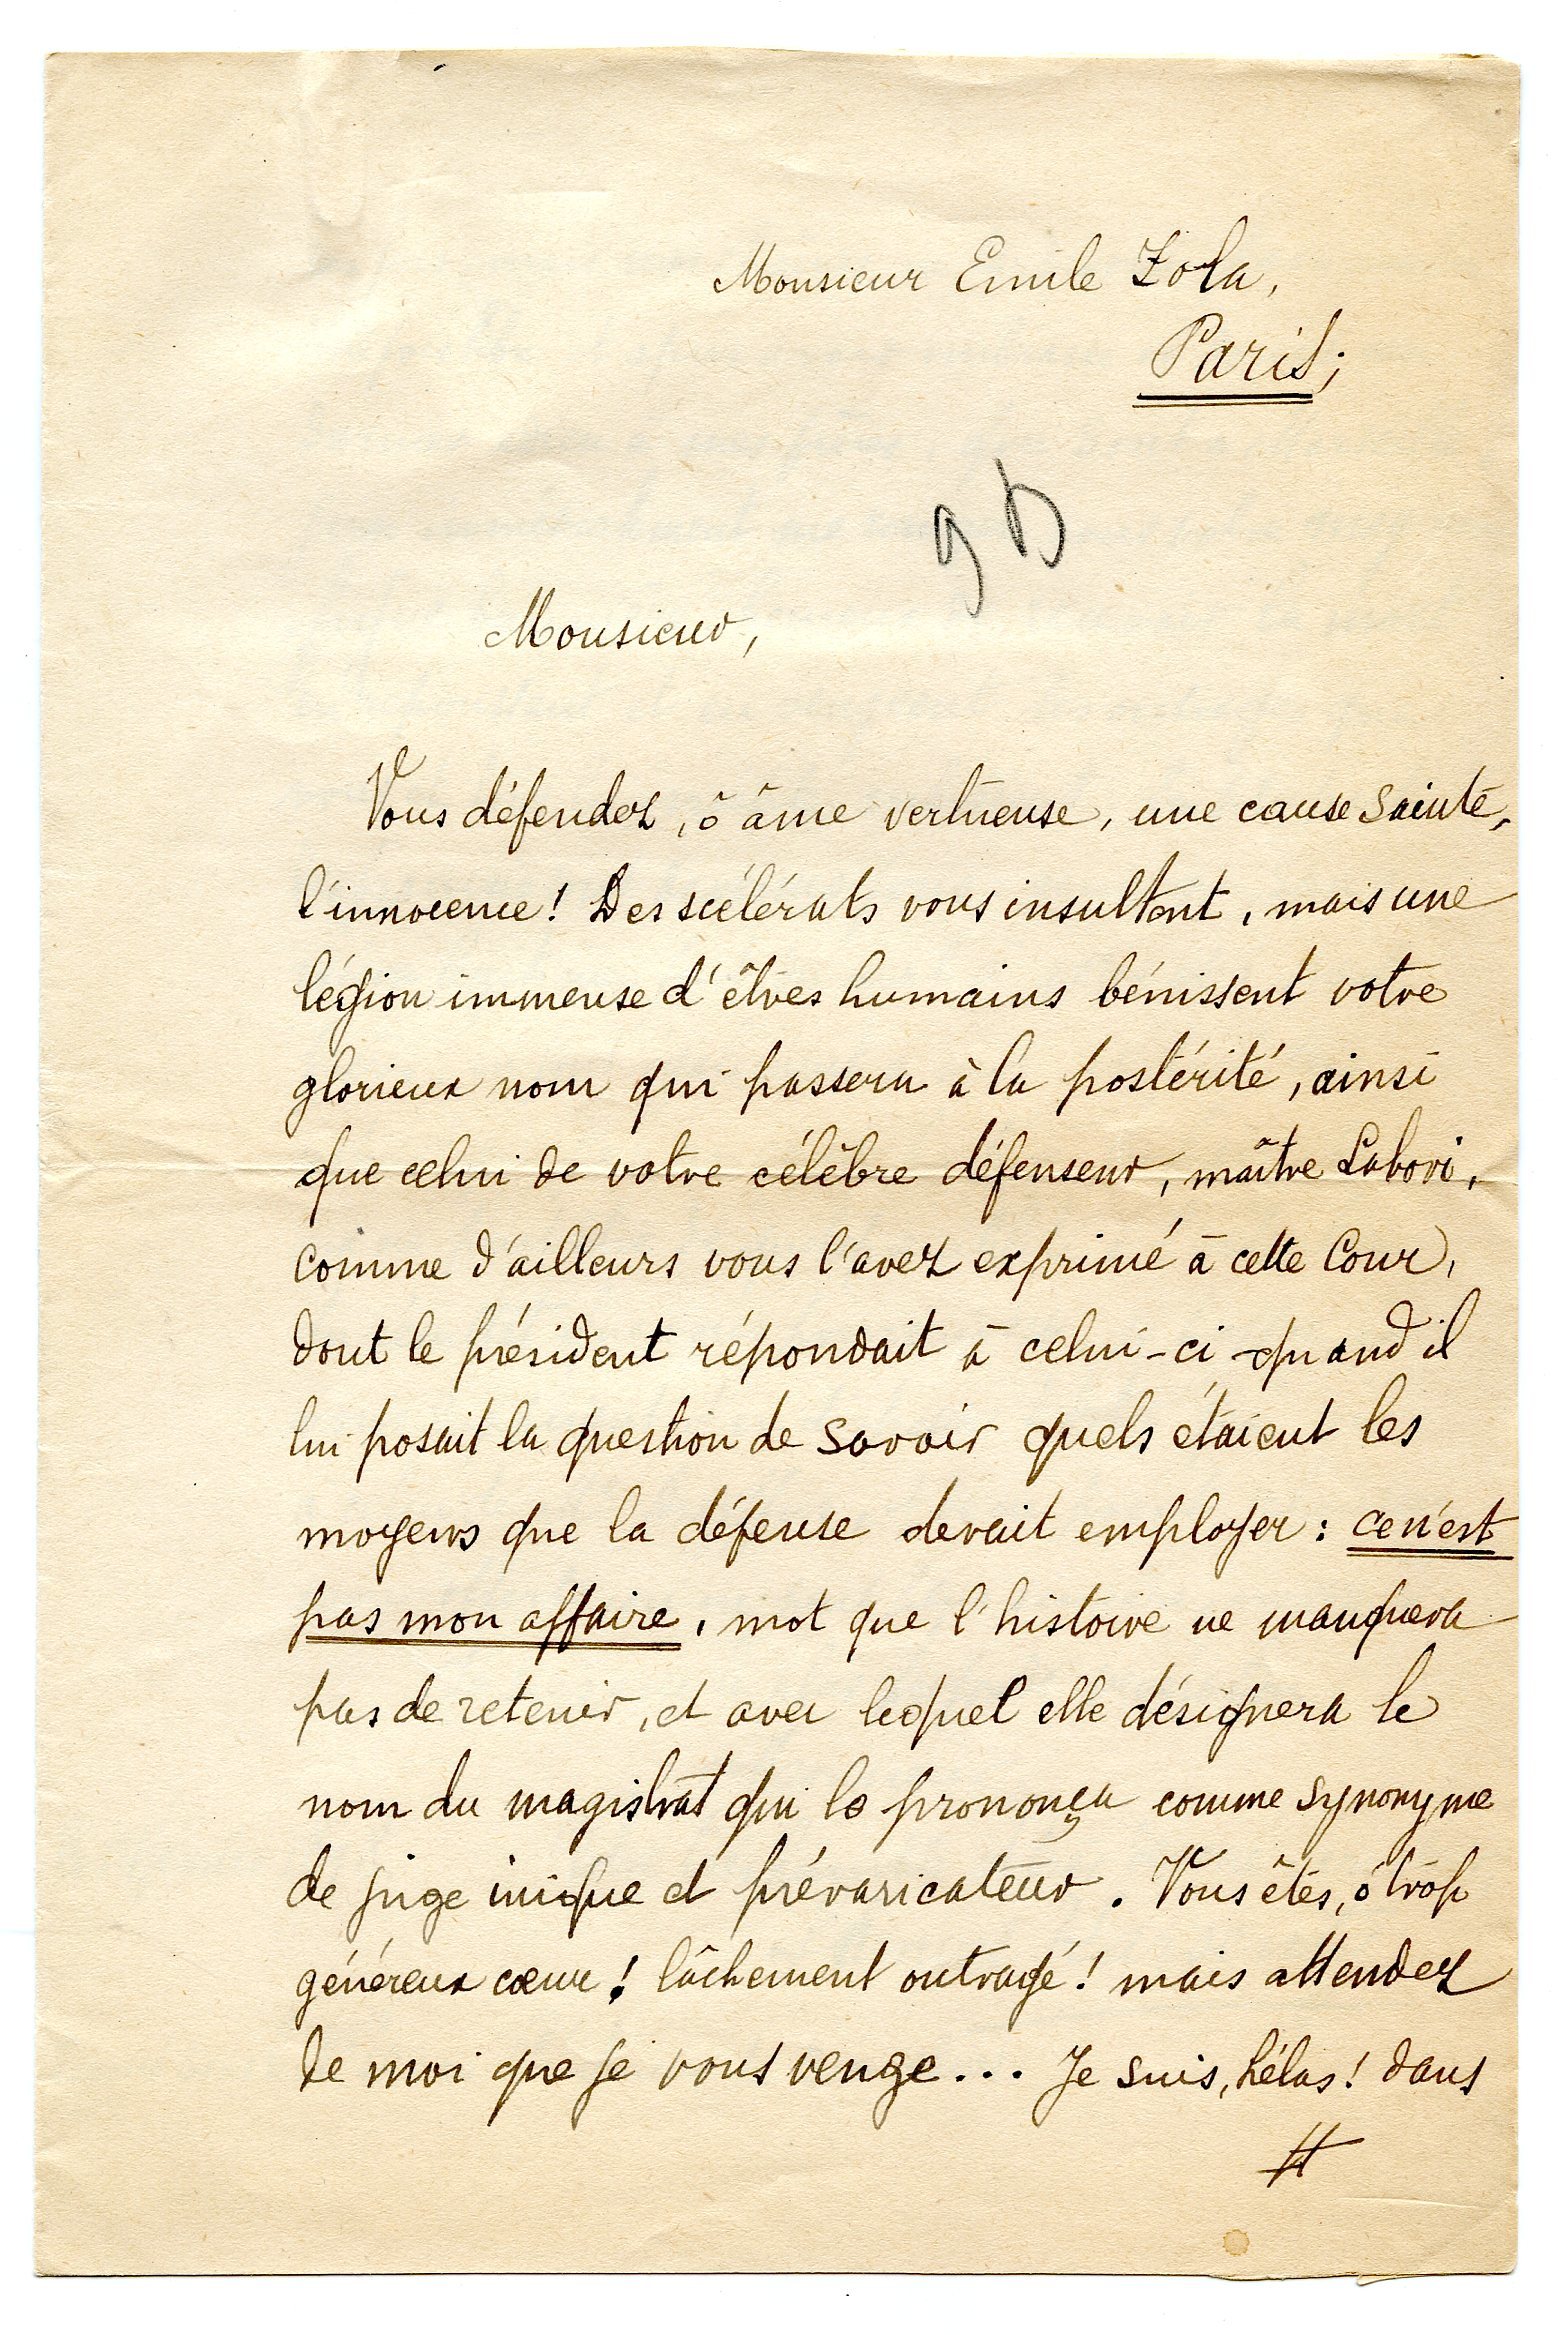 Monsieur Emile Zola,
Paris;
9D
Monsieur,
Vous défendez, ô âme vertueuse, une cause sainte,
l'innocence! Des scélérats vous insultent, mais une
légion immense d'êtres humains bénissent votre
glorieux nom qui passera à la postérité, ainsi
que celui de votre célèbre défenseur, maître Labori,
comme d'ailleurs vous l'avez exprimé à cette Cour,
dont le président répondait à celui-ci quand il
lui posait la question de savoir quels étaient les
moyens que la défense devait employer: ce n'est
pas mon affaire, mot que l'histoire ne manquera
pas de retenir, et avec lequel elle désignera le
nom du magistrat qui le prononça comme synonyme
de juge inique et prévaricateur. Vous êtes, ô trop
généreux cœur! lâchement outragé! mais attendez
de moi que je vous venge... Je suis, hélas! dans